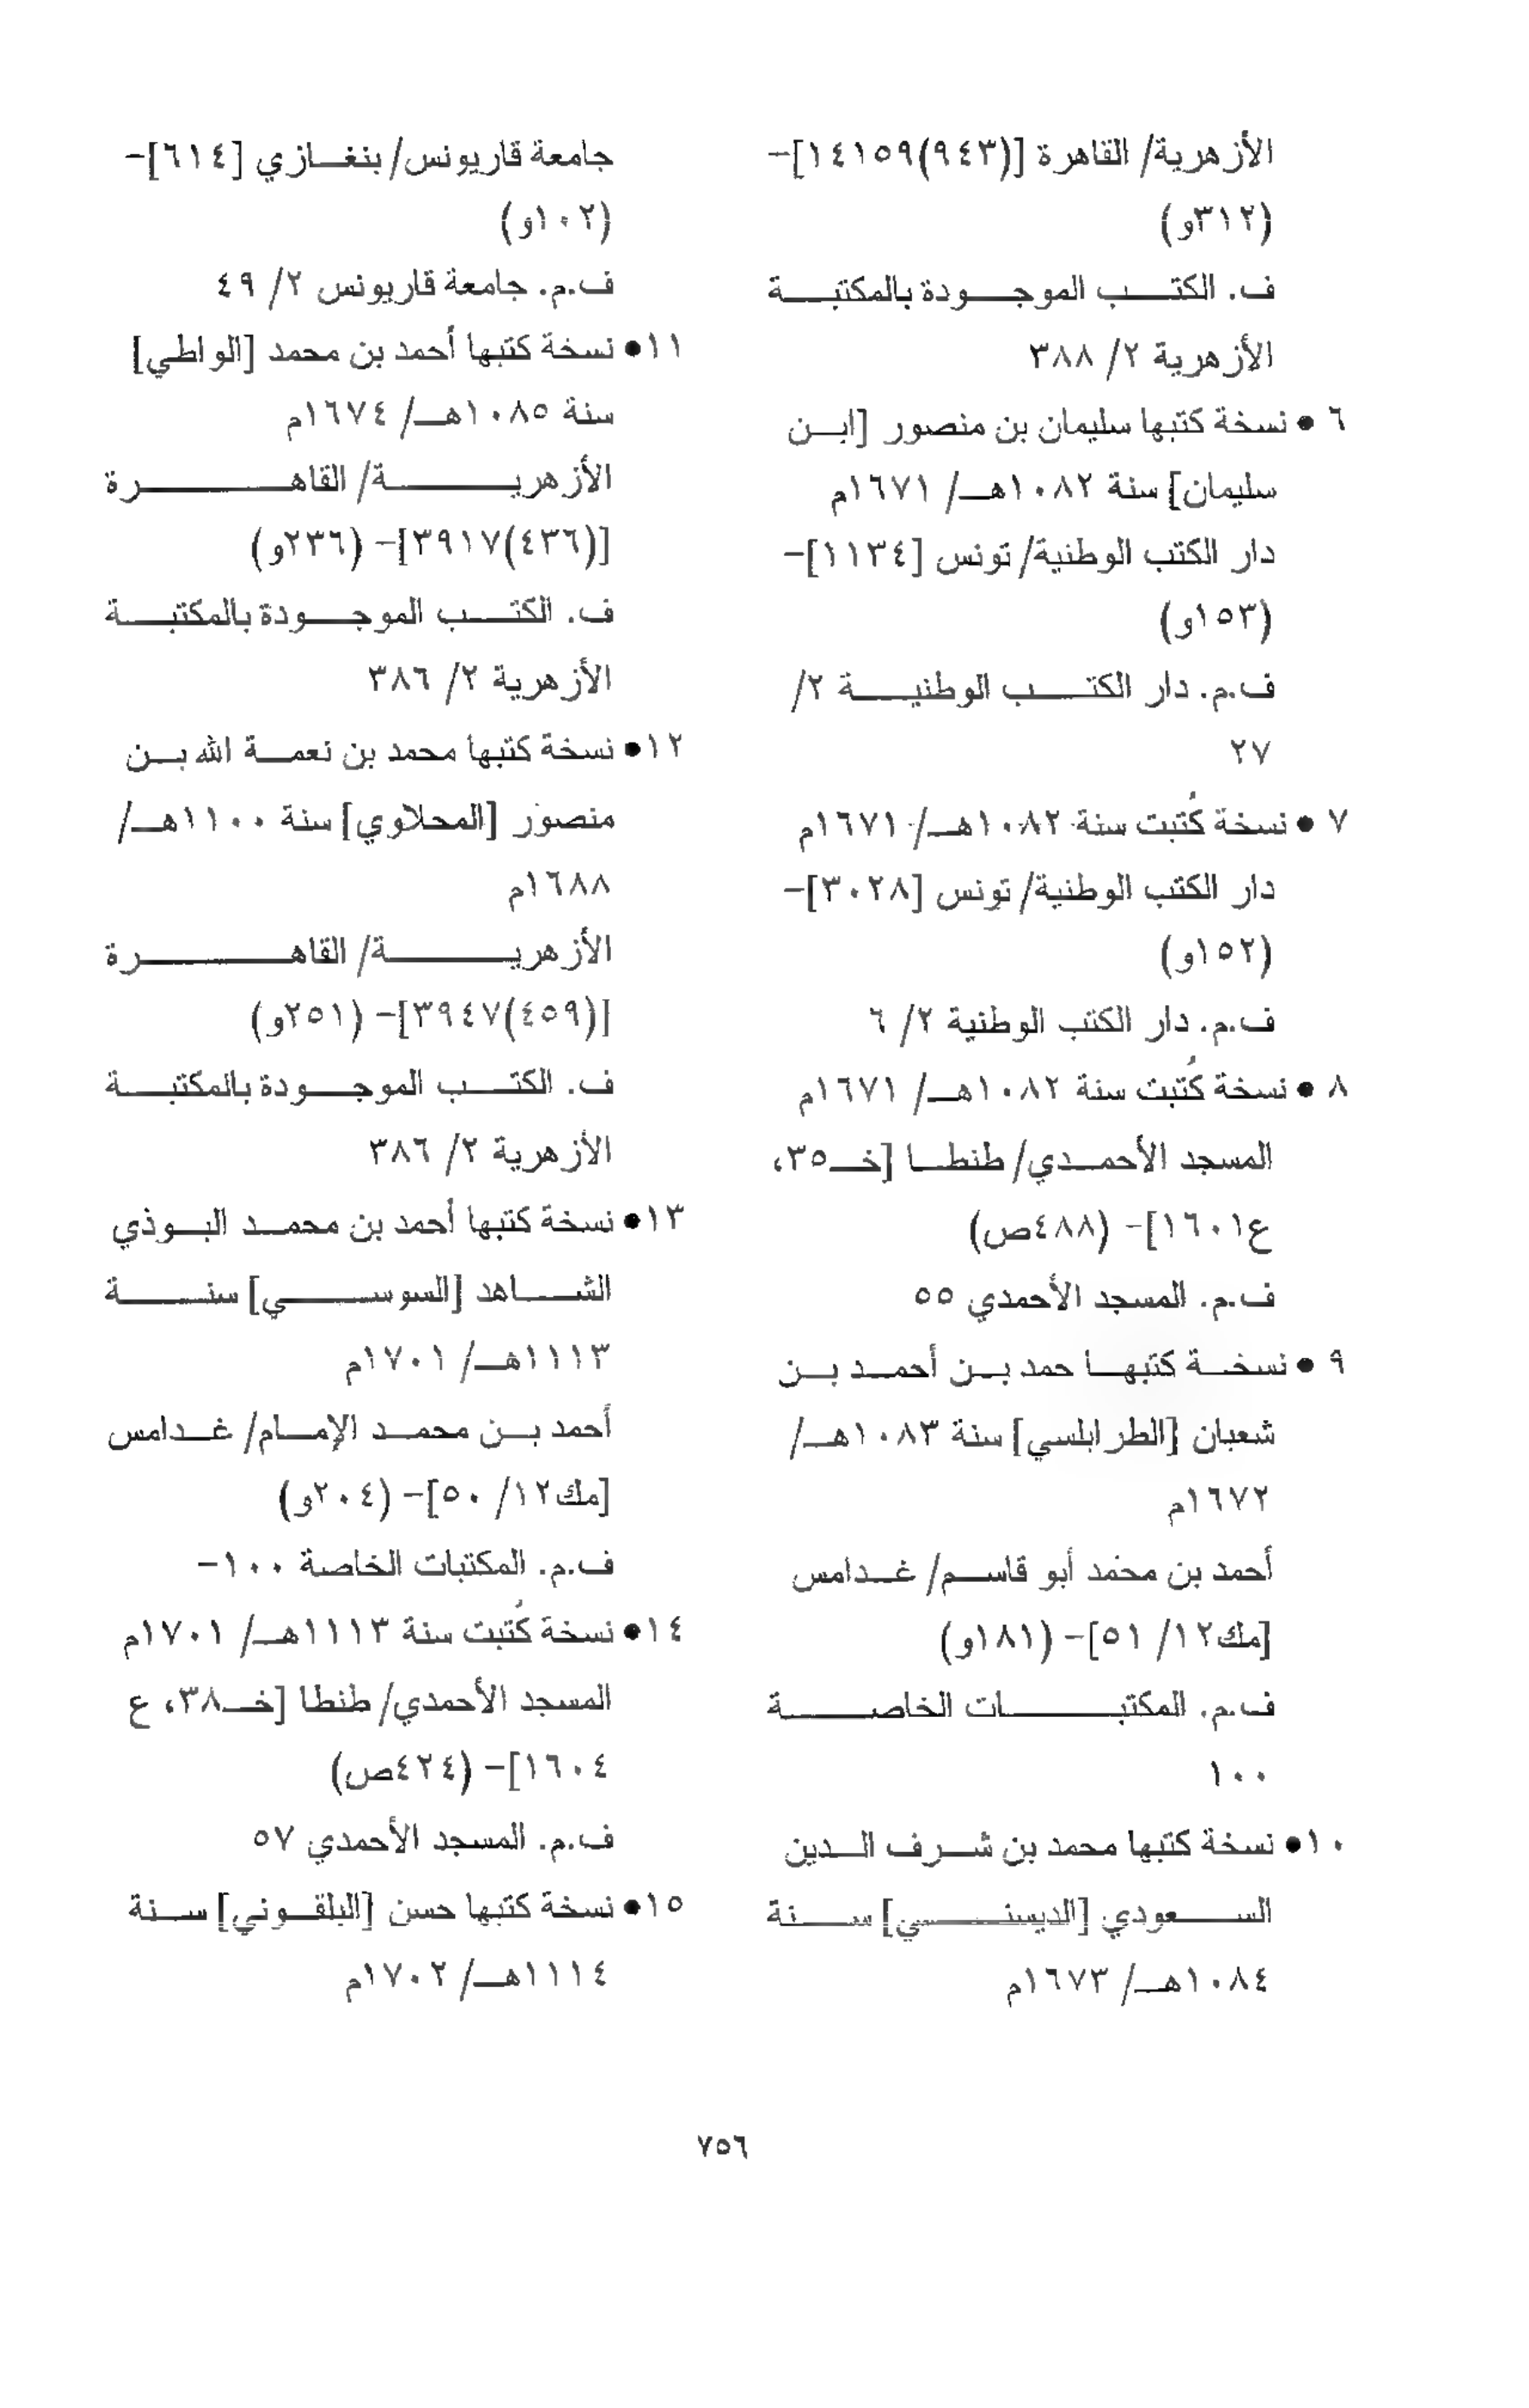 الأزهرية/ القاهرة [(٩٤٣)١٤١٥٩]-
(٣١٢و)
ف. الكتب الموجودة بالمكتبة
الأزهرية ٢/ ٣٨٨
٦ • نسخة كتبها سليمان بن منصور [ابن
سليمان] سنة ١٠٨٢هـ/ ١٦٧١م
دار الكتب الوطنية/ تونس [١١٣٤]-
(١٥٣و)
ف.م. دار الكتب الوطنية ٢/
٢٧
٧ • نسخة كُتبت سنة ١٠٨٢هـ/ ١٦٧١م
دار الكتب الوطنية/ تونس [٣٠٢٨]-
(١٥٢و)
ف.م. دار الكتب الوطنية ٢/ ٦
٨ • نسخة كُتبت سنة ١٠٨٢هـ/ ١٦٧١م
المسجد الأحمدي/ طنطا [خـ٣٥،
ع١٦٠١]- (٤٨٨ص)
ف.م. المسجد الأحمدي ٥٥
٩ • نسخة كتبها حمد بن أحمد بن
شعبان [الطرابلسي] سنة ١٠٨٣هـ/
١٦٧٢م
أحمد بن محمد أبو قاسم/ غدامس
[مك١٢/ ٥١]- (١٨١و)
ف.م. المكتبات الخاصة
١٠٠
١٠• نسخة كتبها محمد بن شرف الدين
السعودي [الديسني] سنة
١٠٨٤هـ/ ١٦٧٣م
جامعة قاريونس/ بنغازي [٦١٤]-
(١٠٢و)
ف.م. جامعة قاريونس ٢/ ٤٩
١١• نسخة كتبها أحمد بن محمد [الواطي]
سنة ١٠٨٥هـ/ ١٦٧٤م
الأزهرية/ القاهرة
[(٤٣٦)٣٩١٧]- (٢٣٦و)
ف. الكتب الموجودة بالمكتبة
الأزهرية ٢/ ٣٨٦
١٢• نسخة كتبها محمد بن نعمة الله بن
منصور [المحلاوي] سنة ١١٠٠هـ/
١٦٨٨م
الأزهرية/ القاهرة
[(٤٥٩)٣٩٤٧]- (٢٥١و)
ف. الكتب الموجودة بالمكتبة
الأزهرية ٢/ ٣٨٦
١٣• نسخة كتبها أحمد بن محمد البوذي
الشاهد [السوسي] سنة
١١١٣هـ/ ١٧٠١م
أحمد بن محمد الإمام/ غدامس
[مك١٢/ ٥٠]- (٢٠٤و)
ف.م. المكتبات الخاصة ١٠٠-
١٤• نسخة كُتبت سنة ١١١٣هـ/ ١٧٠١م
المسجد الأحمدي/ طنطا [خـ٣٨، ع
١٦٠٤]- (٤٢٤ص)
ف.م. المسجد الأحمدي ٥٧
١٥• نسخة كتبها حسن [البلقوني] سنة
١١١٤هـ/ ١٧٠٢م
٧٥٦